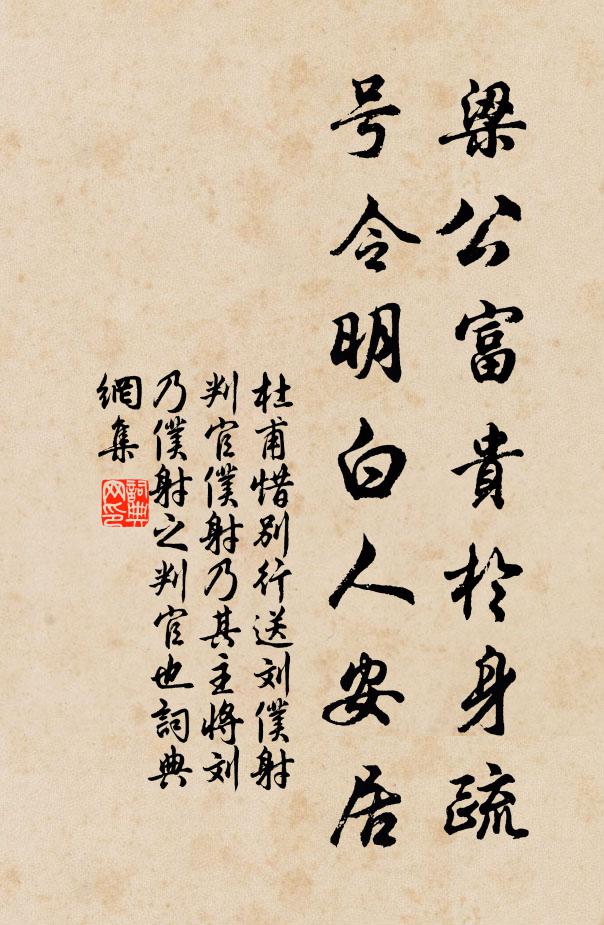 梁公富貴於身疏
号令明白人安居
杜甫惜别行送刘僕射
判官僕射乃其主將刘
乃僕射之判官也詞典
網集
詞典网印